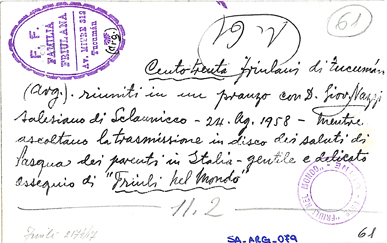 F. F.
FAMILIA
FRIULANA
AV. MITRE 312
Tucumán
(arg.)
N. 61
61
Centotrenta friulani di Tucumán
(Arg.) riuniti in un pranzo con D. Giov. Nazzi
salesiano di Sclaunicco - 24. Ag. 1958 - Mentre
ascoltano la trasmissione in disco dei saluti di
Pasqua dei parenti in Italia - gentile e delicato
ossequio di "Friuli nel Mondo"
"FRIULI NEL MONDO"
11.2
61
SA_ARG_079